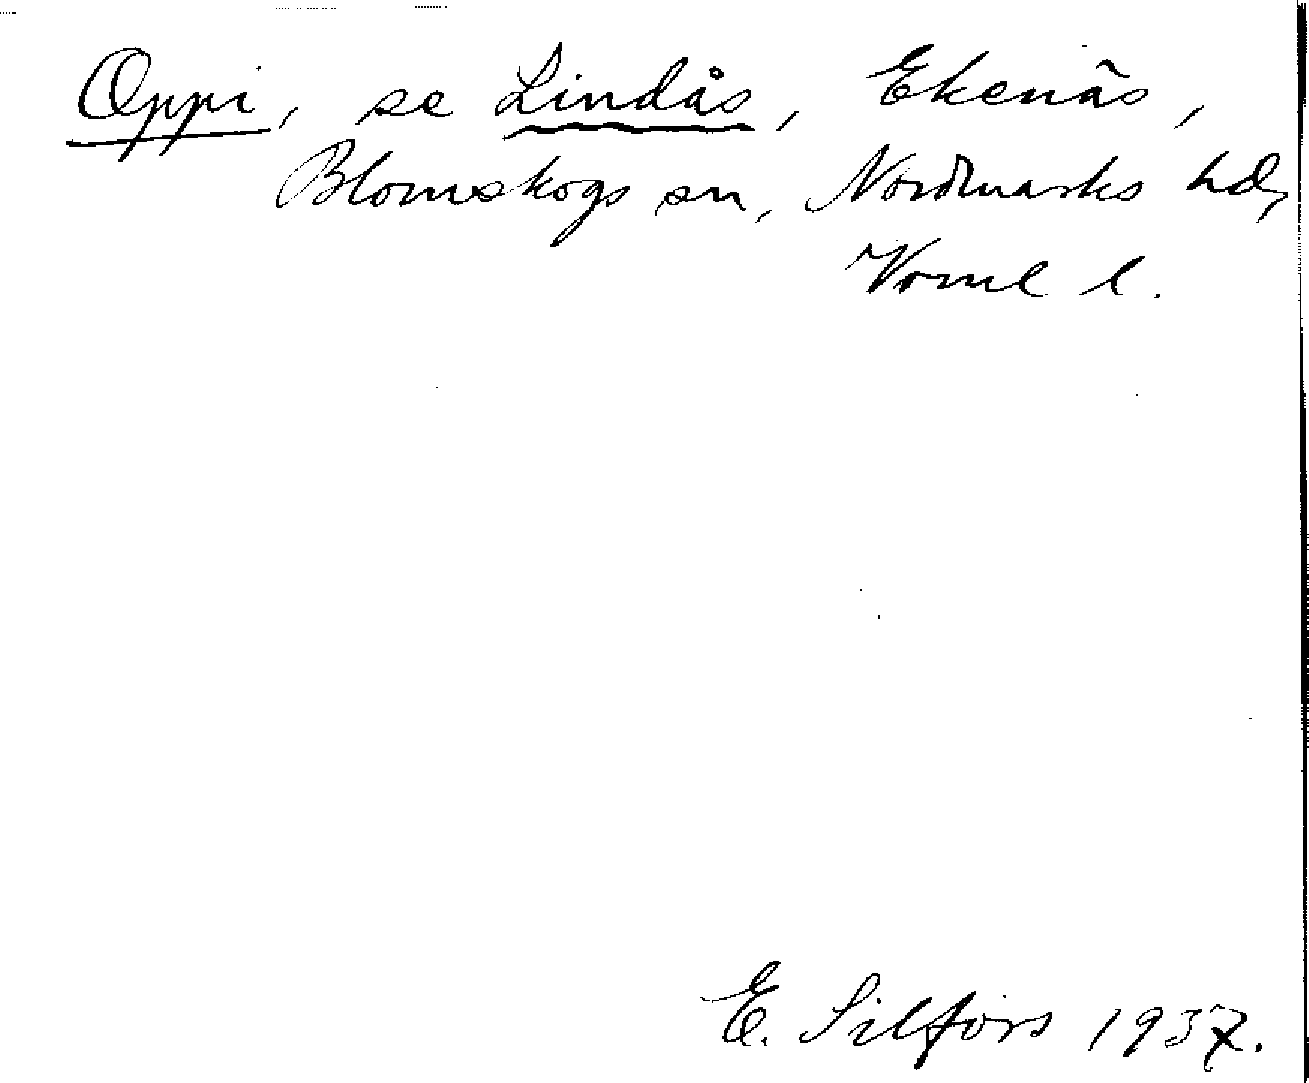 Oppi, se Lindås, Ekenäs,
Blomskogs sn, Nordmarks hd,
Vrml l.
E. Silfors 1937.